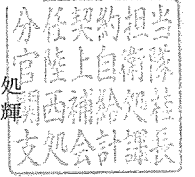 分任契約担当
官陸上自衛隊
関西補給処桂
支処会計課長
処輝